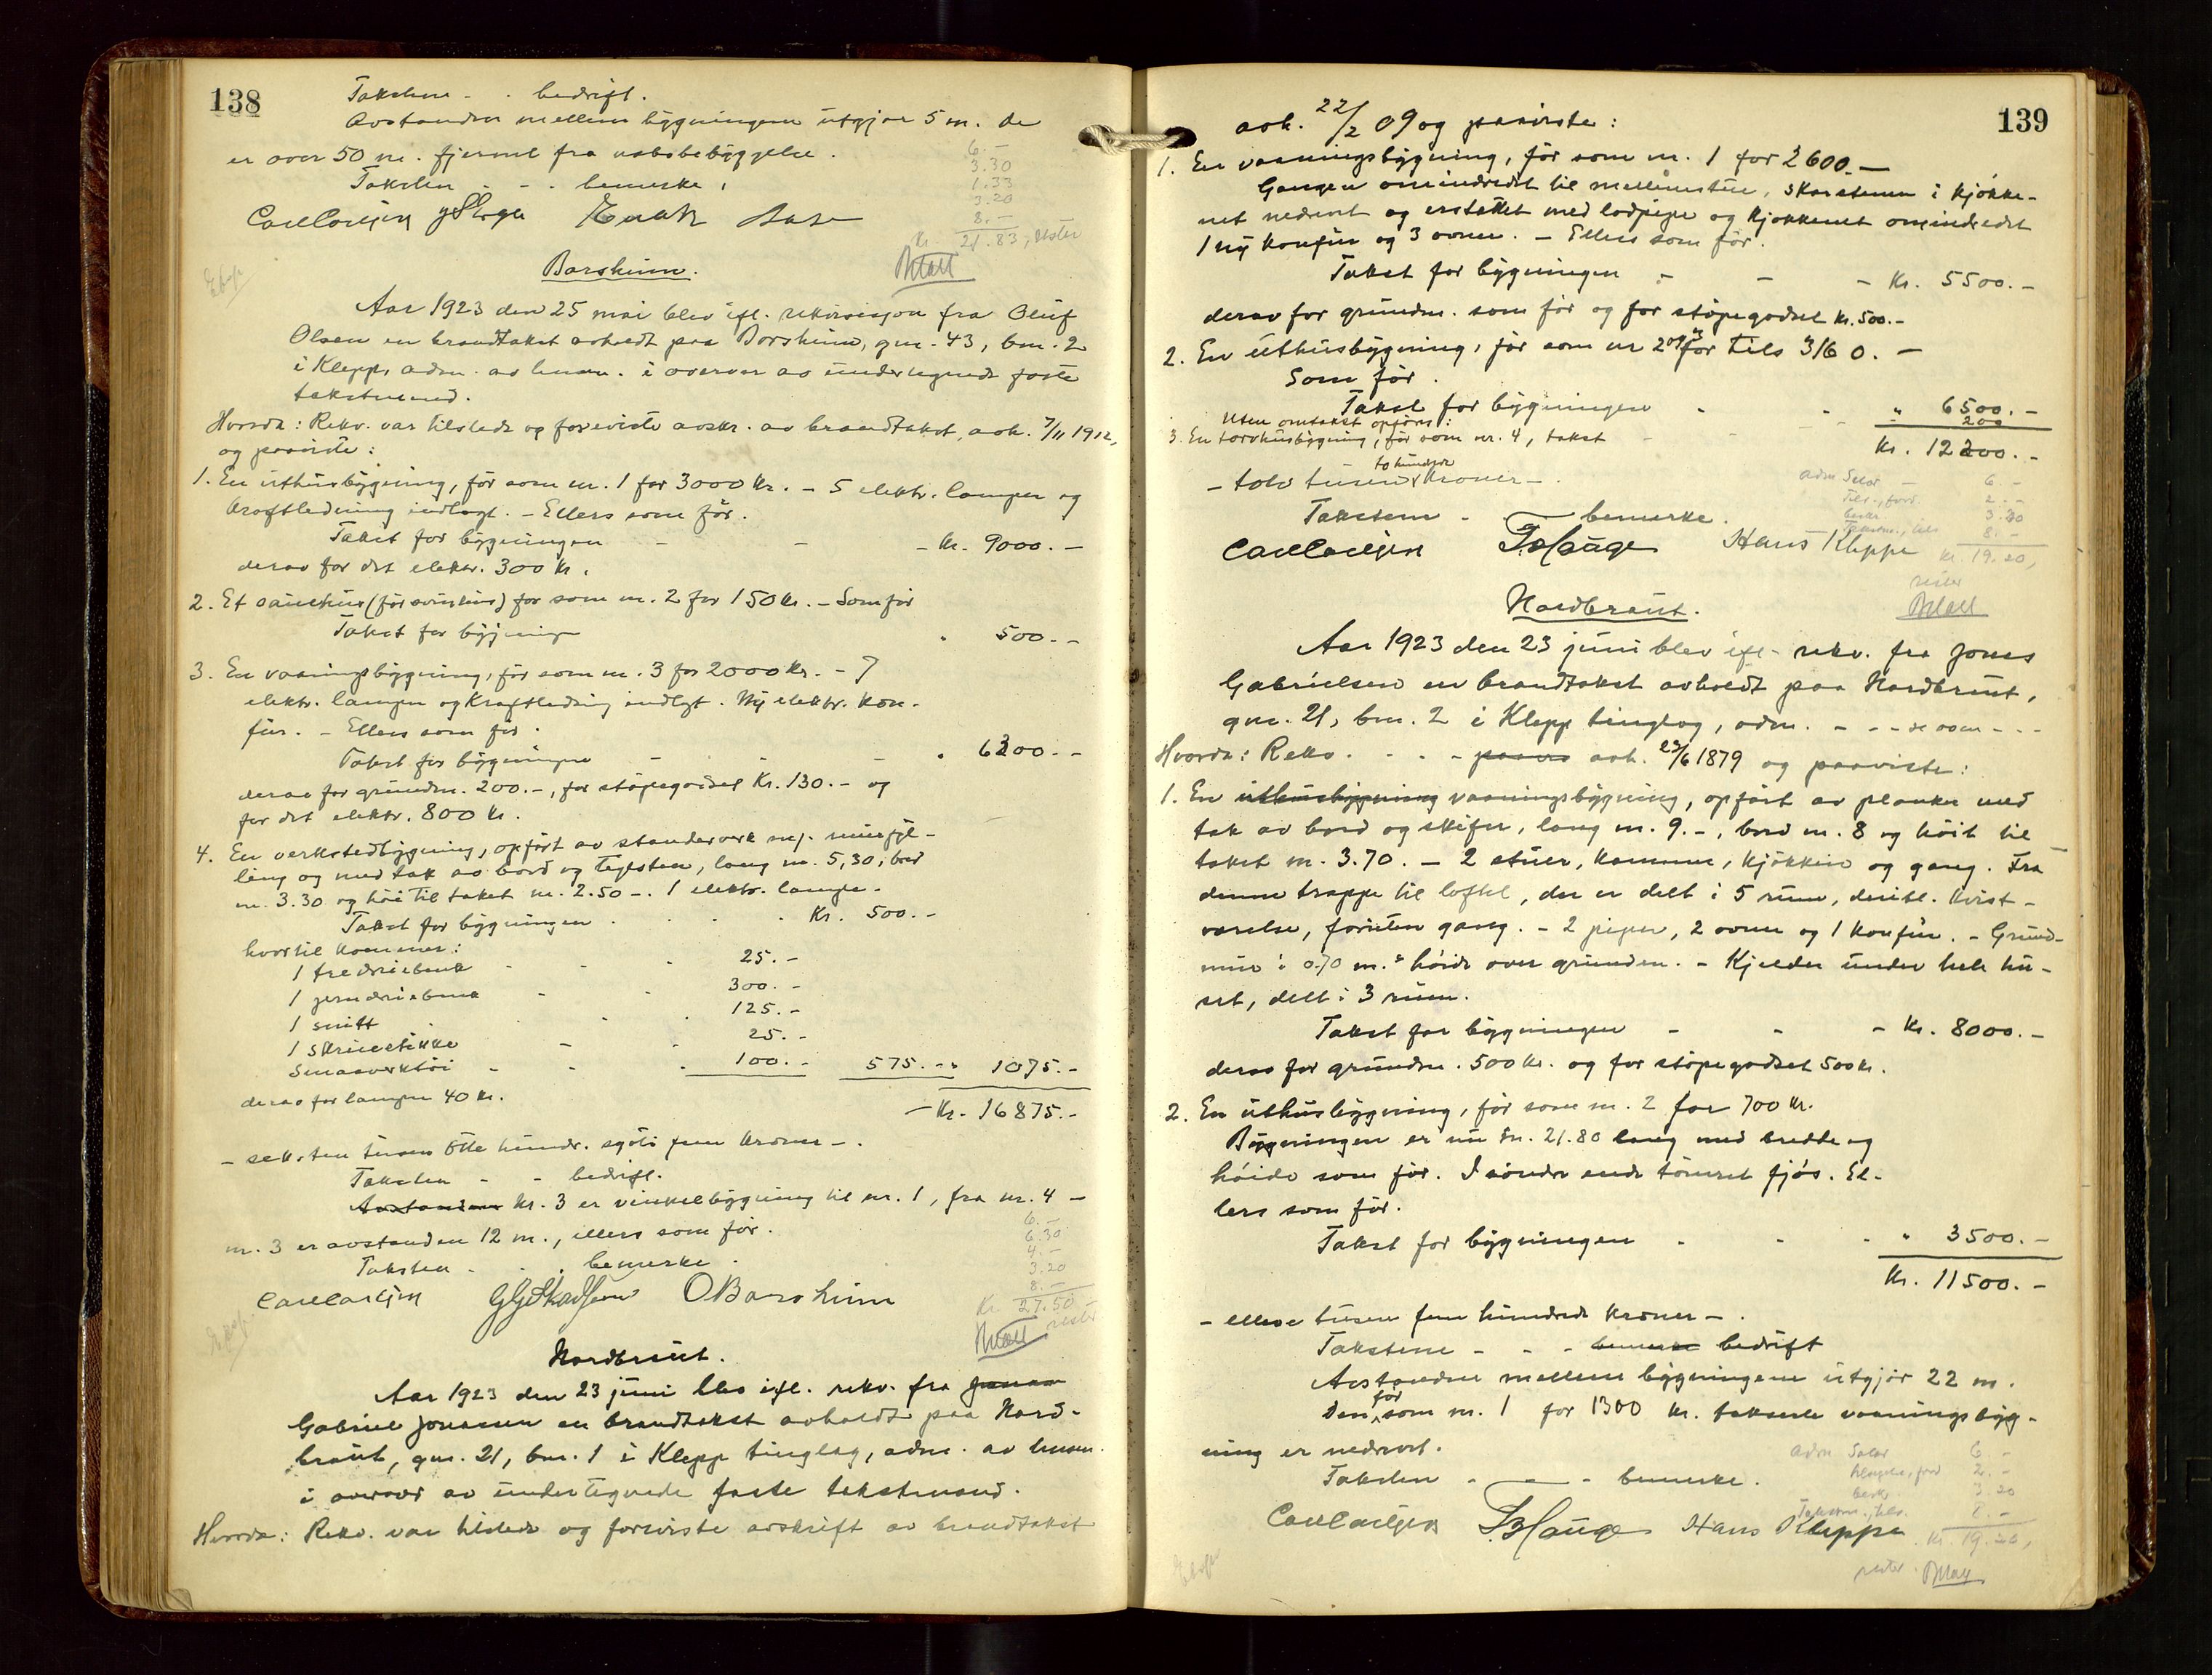 138
Taksten - - bedrift.
Avstanden mellem bygningene utgjør 5 m. de
er over 50 m. fjernet fra nabobebyggelse.
Taksten - - - bemerke.
6.-
3.30
1.33
3.20
8.-
Kr. 21.83, rester
Betalt
Carl Carlsen
Borsheim.
Aar 1923 den 25 mai blev ifl. rekvisisjon fra Oluf
Olsen en brandtakst avholdt paa Borsheim, gnr. 43, bnr. 2
i Klepp, adm. av lensm. i overvær av undertegnede faste
takstmænd.
Hvorda: Rekv. var tilstede og foreviste avskr. av brandtakst, avh. 7/11 1912,
og paaviste:
1. En uthusbygning, før som nr. 1 for 3000 Kr. - 5 elektr. lamper og
kraftledning indlagt. - Ellers som før.
Takst for bygningen - - - Kr. 9000.-
derav for det elektr. 300 Kr.
2. Et sauehus (før svinhus) før som nr. 2 for 150 Kr. - Som før
Takst for bygningen " 500.-
3. En vaaningsbygning, før som nr. 3 for 2000 Kr. - 7
elektr. lamper og kraftledning indlagt. Ny elektr. kom-
fur. - Ellers som før.
Takst for bygningen - - - " 6300.-
derav for grundm. 200.-, for støpegodset Kr. 130.- og
for det elektr. 800 Kr.
4. En verkstedbygning, opført av standerverk m/.
og med tak av bord og teglsten, lang m. 5,30, bred
m. 3.30 og høi til taket m. 2.50 -. 1 elektr. lampe -
Takst for bygningen - - - Kr. 500.-
hvortil kommer:
1 fredriebenk - - - 25.-
1 jerndriebenk - - 300.-
1 snitt - - - 125.-
1 skruestikke - - 25.-
Smaaverktøi - - - 100.- 575.- " 1075.-
derav for lampen 40 Kr.
- Kr. 16875.-
- seksten tusen otte hundr. sytti fem kroner -.
Taksten - - bedrift.
Avstanden Nr. 3 er vinkelbygning til nr. 1, fra nr. 4 -
nr. 3 er avstanden 12 m., ellers som før.
Taksten - - - bemerke.
6.-
6.30
4.-
3.20
8.-
Kr. 27.50
rester
Betalt
Carl Carlsen O Borsheim
Nordbraut.
Aar 1923 den 23 juni blev ifl. rekv. fra Jonas
Gabriel Jonassen en brandtakst avholdt paa Nord-
braut, gnr. 21, bnr. 1 i Klepp tinglag, adm. av lensm.
i overvær av undertegnede faste takstmænd.
Hvorda: Rekv. var tilstede og foreviste avskrift av brandtakst
139
avh. 22/2 09 og paaviste:
1. En vaaningsbygning, før som nr. 1 for 2600.-
Gangen omindredet til mellemstue, skorstenen i kjøkke-
net nedrevet og erstattet med lodpipe og kjøkkenet omindredet
1 ny komfur og 3 ovner. - Ellers som før.
Takst for bygningen - - - Kr. 5500.-
derav for grundm. som før og for støpegodset Kr. 500.-
2. En uthusbygning, før som nr 2 og 3 for tils 3160.-
Som før.
Takst for bygningen - - " 6500.-
Uten omtakst opføres:
3. En torvhusbygning, før som nr. 4, takst - - - " 200
Kr. 12200.-
- tolv tusen to hundrede kroner -.
Taksten - - - bemerke.
Adm Salær - 6.-
Tils., ford. 2.-
beskr. 3.20
Takstm., tils 8.-
Kr. 19.20,
rester
Betalt
Carl Carlsen T. Hauge Hans Kleppe
Nordbraut.
Aar 1923 den 23 juni blev ifl. rekv. fra Jonas
Gabrielsen en brandtakst avholdt paa Nordbraut,
gnr. 21, bnr. 2 i Klepp tinglag, adm. - - - se oven - - -
Hvorda: Rekv. - - - paavis avh. 23/6 1879 og paaviste:
1. En uthusbygning vaaningsbygning, opført av planker med
tak av bord og skifer, lang m. 9.-, bred m. 8 og høit til
taket m. 3.70. - 2 stuer, kammer, kjøkken og gang. Fra
denne trappe til loftet, der er delt i 5 rum, deribl. kvist-
værelse, foruten gang. - 2 piper, 2 ovner og 1 komfur. - Grund-
mur i 0.70 m.s høide over grunden. - Kjelder under hele hu-
set, delt i 3 rum.
Takst for bygningen - - - Kr. 8000.-
derav for grundm. 500 Kr. og for støpegodset 500 Kr.
2. En uthusbygning, før som nr. 2 for 700 Kr.
Bygningen er nu m. 21.80 lang med bredde og
høide som før. I søndre ende tømret fjøs. El-
lers som før.
Takst for bygningen - - - " 3500.-
Kr. 11500.-
- elleve tusen fem hundrede kroner -.
Takstene - - - bemerke bedrift
Avstanden mellem bygningene utgjør 22 m.
Den før som nr. 1 for 1300 kr. takserte vaaningsbyg-
ning er nedrevet.
Taksten - - - bemerke.
Adm Salær 6.-
tilsyn, ford 2.-
beskr. 3.20
Takstm., tils. 8.-
Kr. 19.20,
rester Betalt
Carl Carlsen T. Hauge Hans Kleppe